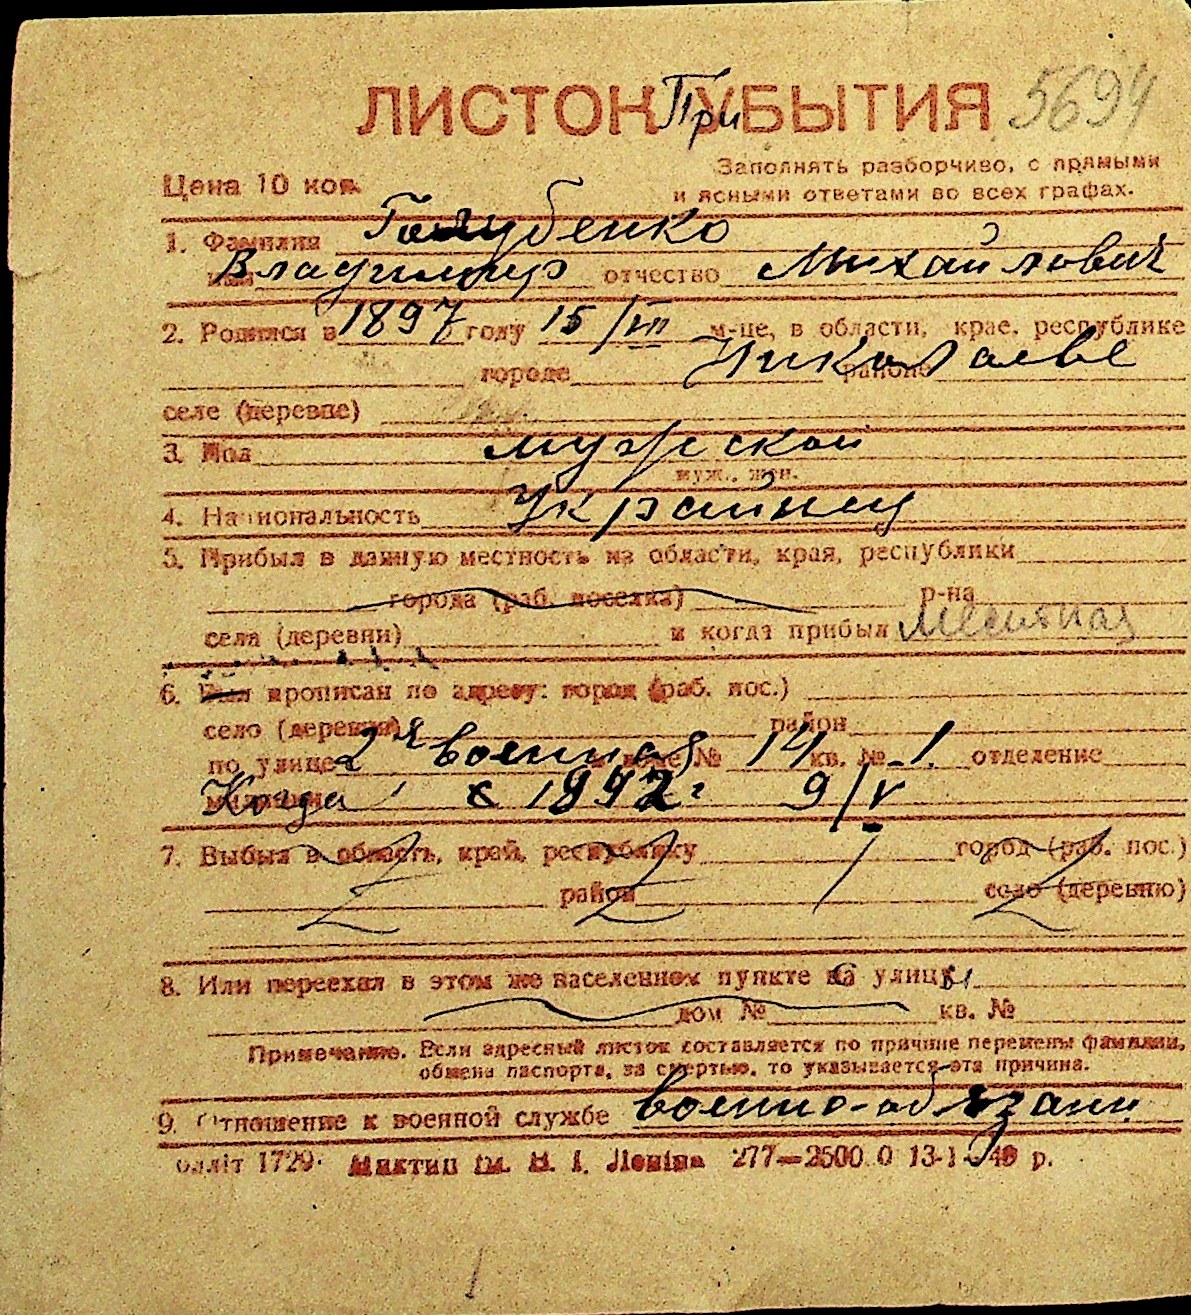 ЛИСТОК При УБЫТИЯ 5694
Цена 10 коп.
Заполнять разборчиво, с прямыми
и ясными ответами во всех графах.
1. Фамилия Голубенко
имя Владимир отчество Михайлович
2. Родился в 1897 году 15/III м-це, в области, крае, республике
городе Николаеве районе
селе (деревне)
3. Пол мужской
муж., жен.
4. Национальность Украинец
5. Прибыл в данную местность из области, края, республики
города (раб. поселка) р-на
села (деревни) и когда прибыл Местная
6. Был прописан по адресу: город (раб. пос.)
село (деревня) район
по улице 2я военная в доме № 14 кв. № 1. отделение
милиции Когда с 1942 г 9/V
7. Выбыл в область, край, республику город (раб. пос.)
район село (деревню)
8. Или переехал в этом же населенном пункте на улицу
дом № кв. №
Примечание. Если адресный листок составляется по причине перемены фамилии,
обмена паспорта, за смертью, то указывается эта причина.
9. Отношение к военной службе военно-обязани
1729. Миктип ім. В. І. Леніна 277—2500 0 13-1 40 р.